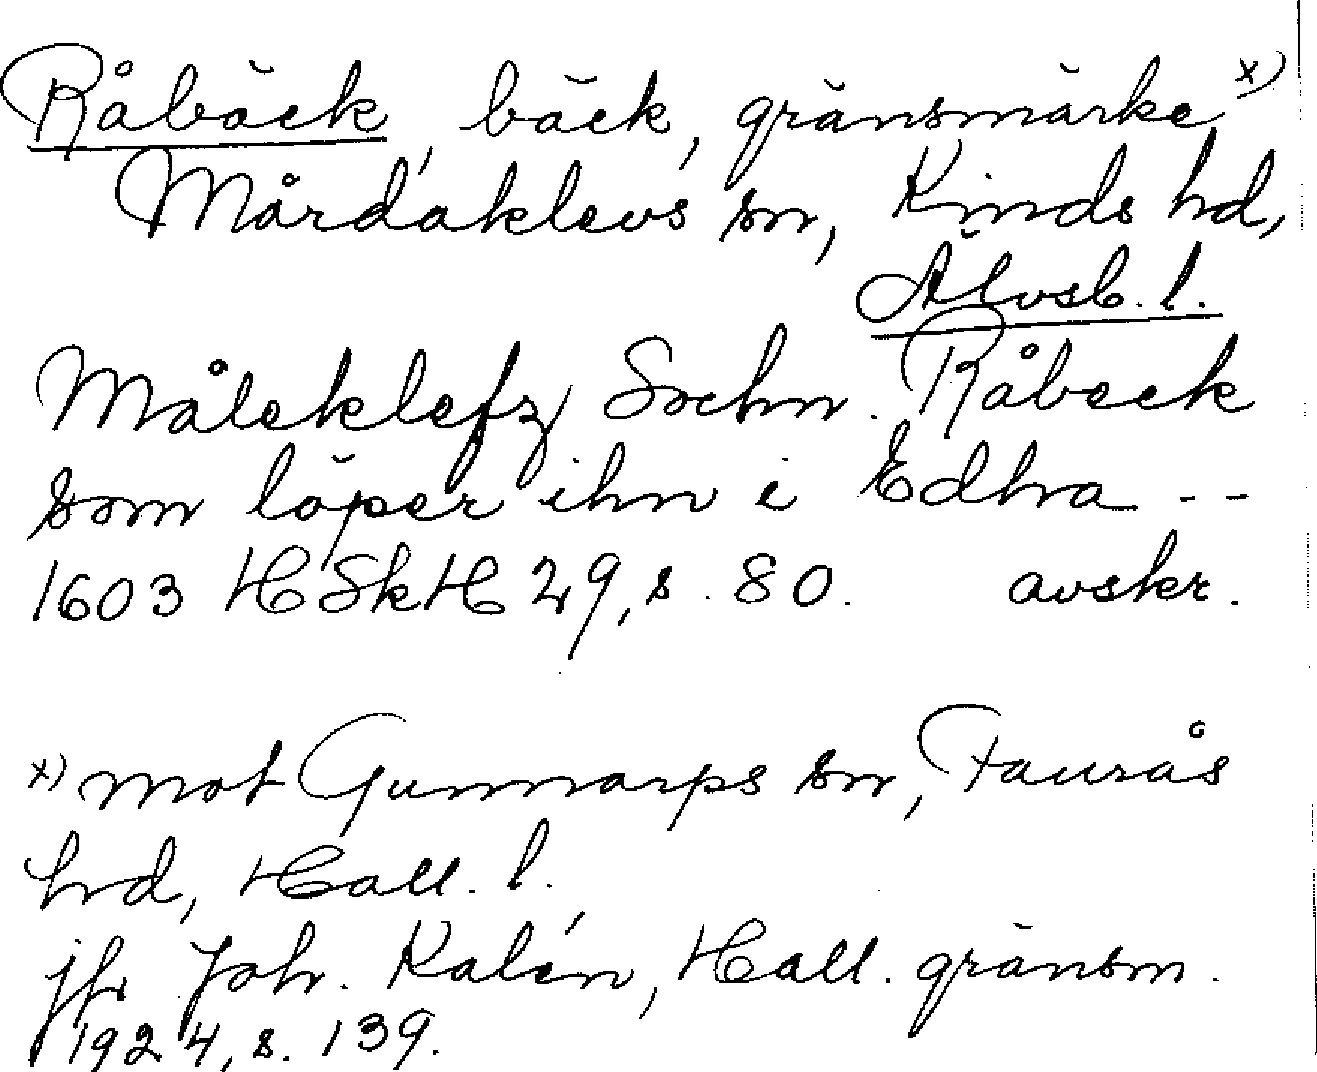 Råbäck, bäck, gränsmärke x)
Mårdaklevs sn, Kinds hd,
Älvsb. l.
Måleklefz Sochn. Råbeck
som löper ihn i Edhra --
1603 HSkH 29, s. 80. avskr.
x) mot Gunnarps sn, Faurås
hd, Hall. l.
jfr Joh. Kalén, Hall. gränsm.
1924, s. 139.